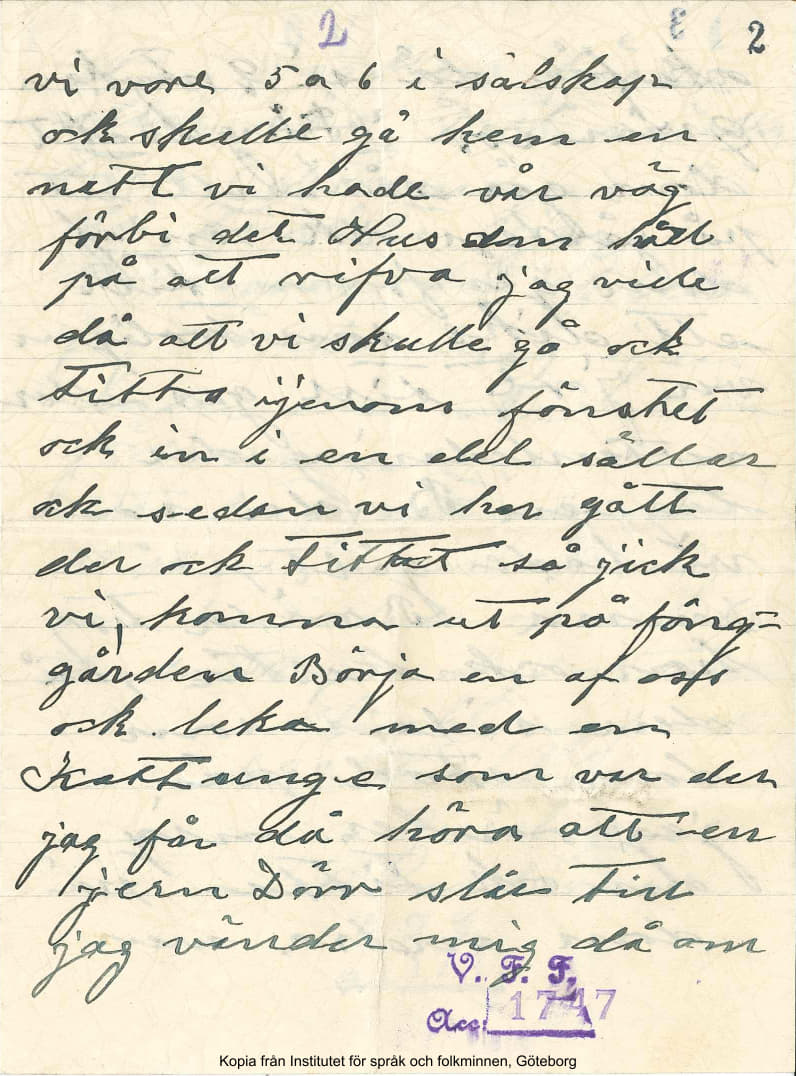 2 2
vi vore 5 a 6 i sälskap
ock skulle gå hem en
natt vi hade vår väg
förbi det Hus som höll
på att rifva jag ville
då att vi skulle gå ock
titta ijenom fönstret
ock in i en del sällar
ock sedan vi har gått
der ock tittat så jick
vi, komna ut på fång-
gården Börja en af oss
ock leka med en
Kattunge som var der
jag får då höra att en
jern Dörr slår till
jag vänder mig då om
V. F. F.
Acc. 1747
Kopia från Institutet för språk och folkminnen, Göteborg